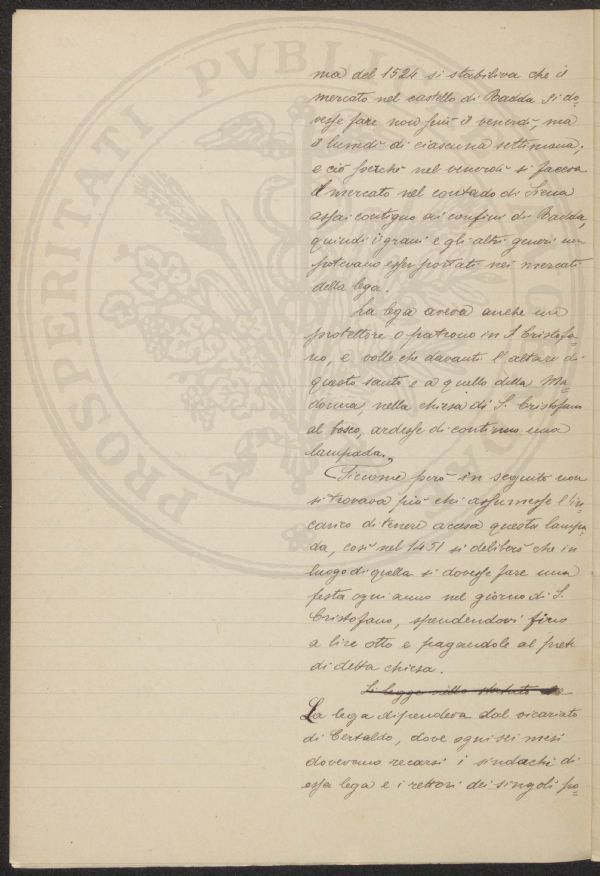 ma del 1524 si stabiliva che il
mercato nel castello di Radda si do=
vesse fare non più il venerdì, ma
il lunedì di ciascuna settimana;
e ciò perché nel venerdì si faceva
il mercato nel contado di Siena
assai contiguo ai confini di Radda,
quindi i grani e gli altri generi non
potevano esser portati nei mercati
della lega.
La lega aveva anche un
protettore o patrono in S Cristofa=
no, e volle che davanti l'altare di
questo santo e a quello della Ma=
donna, nella chiesa di S. Cristofano
al bosco, ardesse di continuo una
lampada.
Siccome però in seguito non
si trovava più chi assumesse l'in=
carico di tenere accesa questa lampa=
da, così nel 1451 si deliberò che in
luogo di quella si dovesse fare una
festa ogni anno nel giorno di S.
Cristofano, spendendovi fino
a lire otto e pagandole al prete
di detta chiesa.
Si legge nello statuto
La lega dipendeva dal vicariato
di Certaldo, dove ogni sei mesi
dovevano recarsi i sindachi di
essa lega e i rettori dei singoli po=
PROSPERITATI PVBLIC